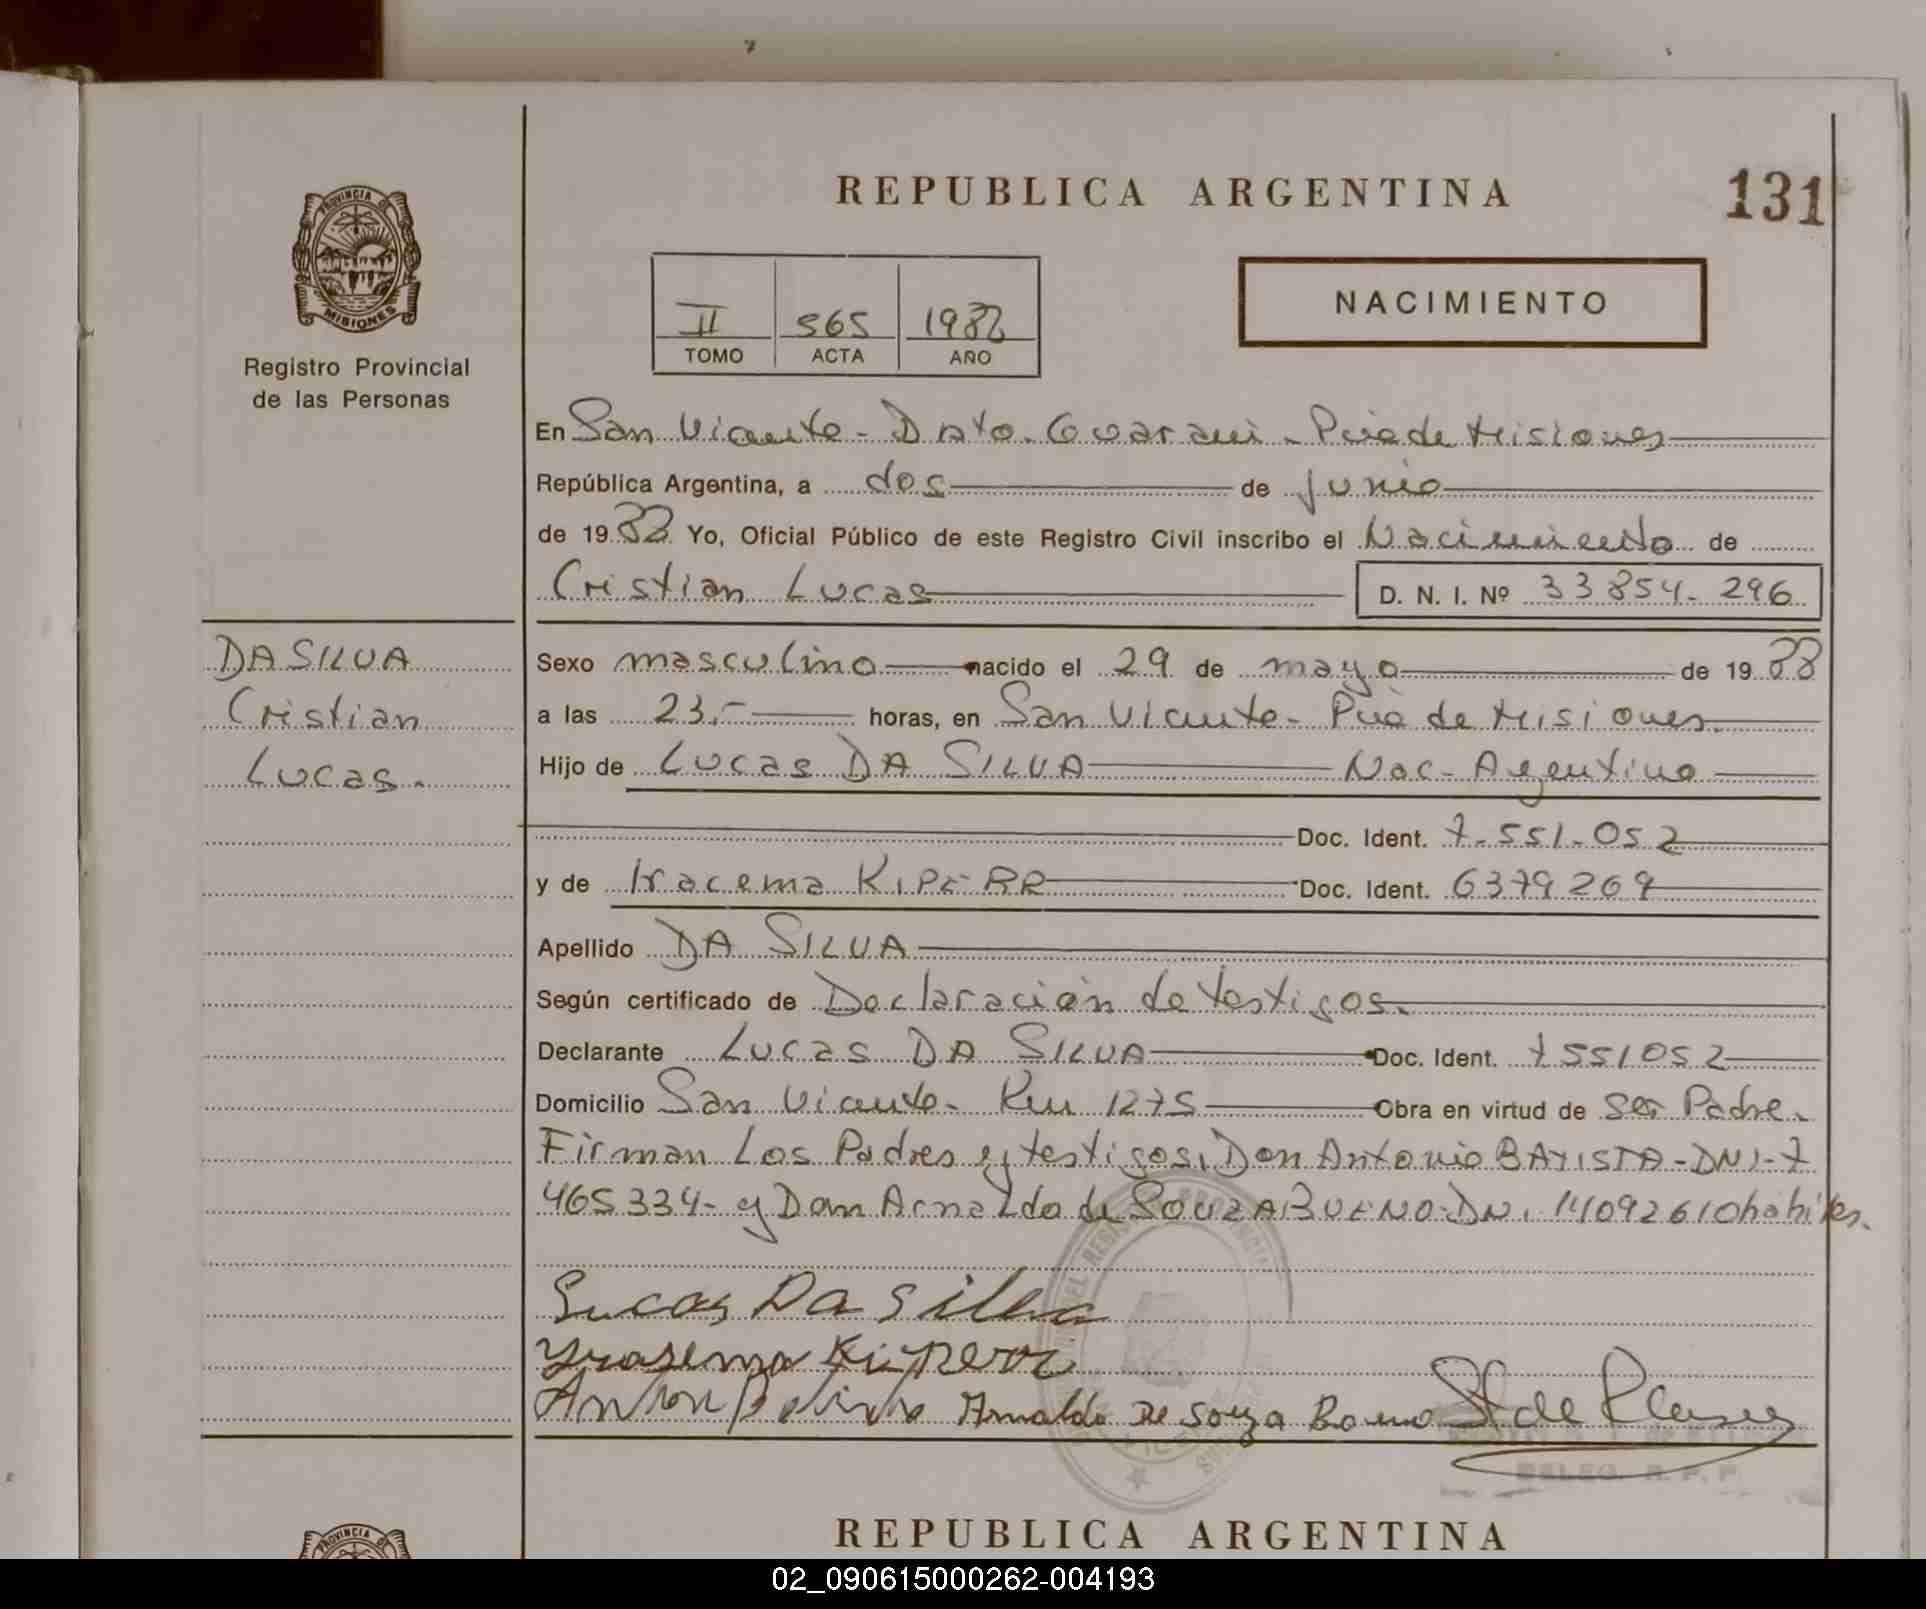 REPUBLICA ARGENTINA
131
PROVINCIA DE
MISIONES
Registro Provincial
de las Personas
II 565 1988
TOMO ACTA AÑO
NACIMIENTO
En San Vicente - Dpto. Guarani - Pcia de Misiones
República Argentina, a dos de junio
de 1988 Yo, Oficial Público de este Registro Civil inscribo el Nacimiento de
Cristian Lucas D. N. I. Nº 33854.296
DA SILVA
Cristian
Lucas.
Sexo masculino nacido el 29 de mayo de 1988
a las 23.- horas, en San Vicente - Pcia de Misiones.
Hijo de Lucas DA SILVA Nac- Argentino
Doc. Ident. 7.551.052
y de Iracema KIPERR Doc. Ident. 6379269
Apellido DA SILVA
Según certificado de Declaración de testigos.
Declarante Lucas DA SILVA Doc. Ident. 7551052
Domicilio San Vicente - Km 1275 Obra en virtud de ser Padre.
Firman Los Padres y testigos, Don Antonio BATISTA - DNI - 7
465334- y Don Arnaldo de SOUZA BUENO - DNI. 14092610 hábiles.
Lucas Da Silva
Yrasema Kiperr
Arnaldo De Souza Bueno
DELEG. R. P. P.
REPUBLICA ARGENTINA
PROVINCIA DE
02_090615000262-004193